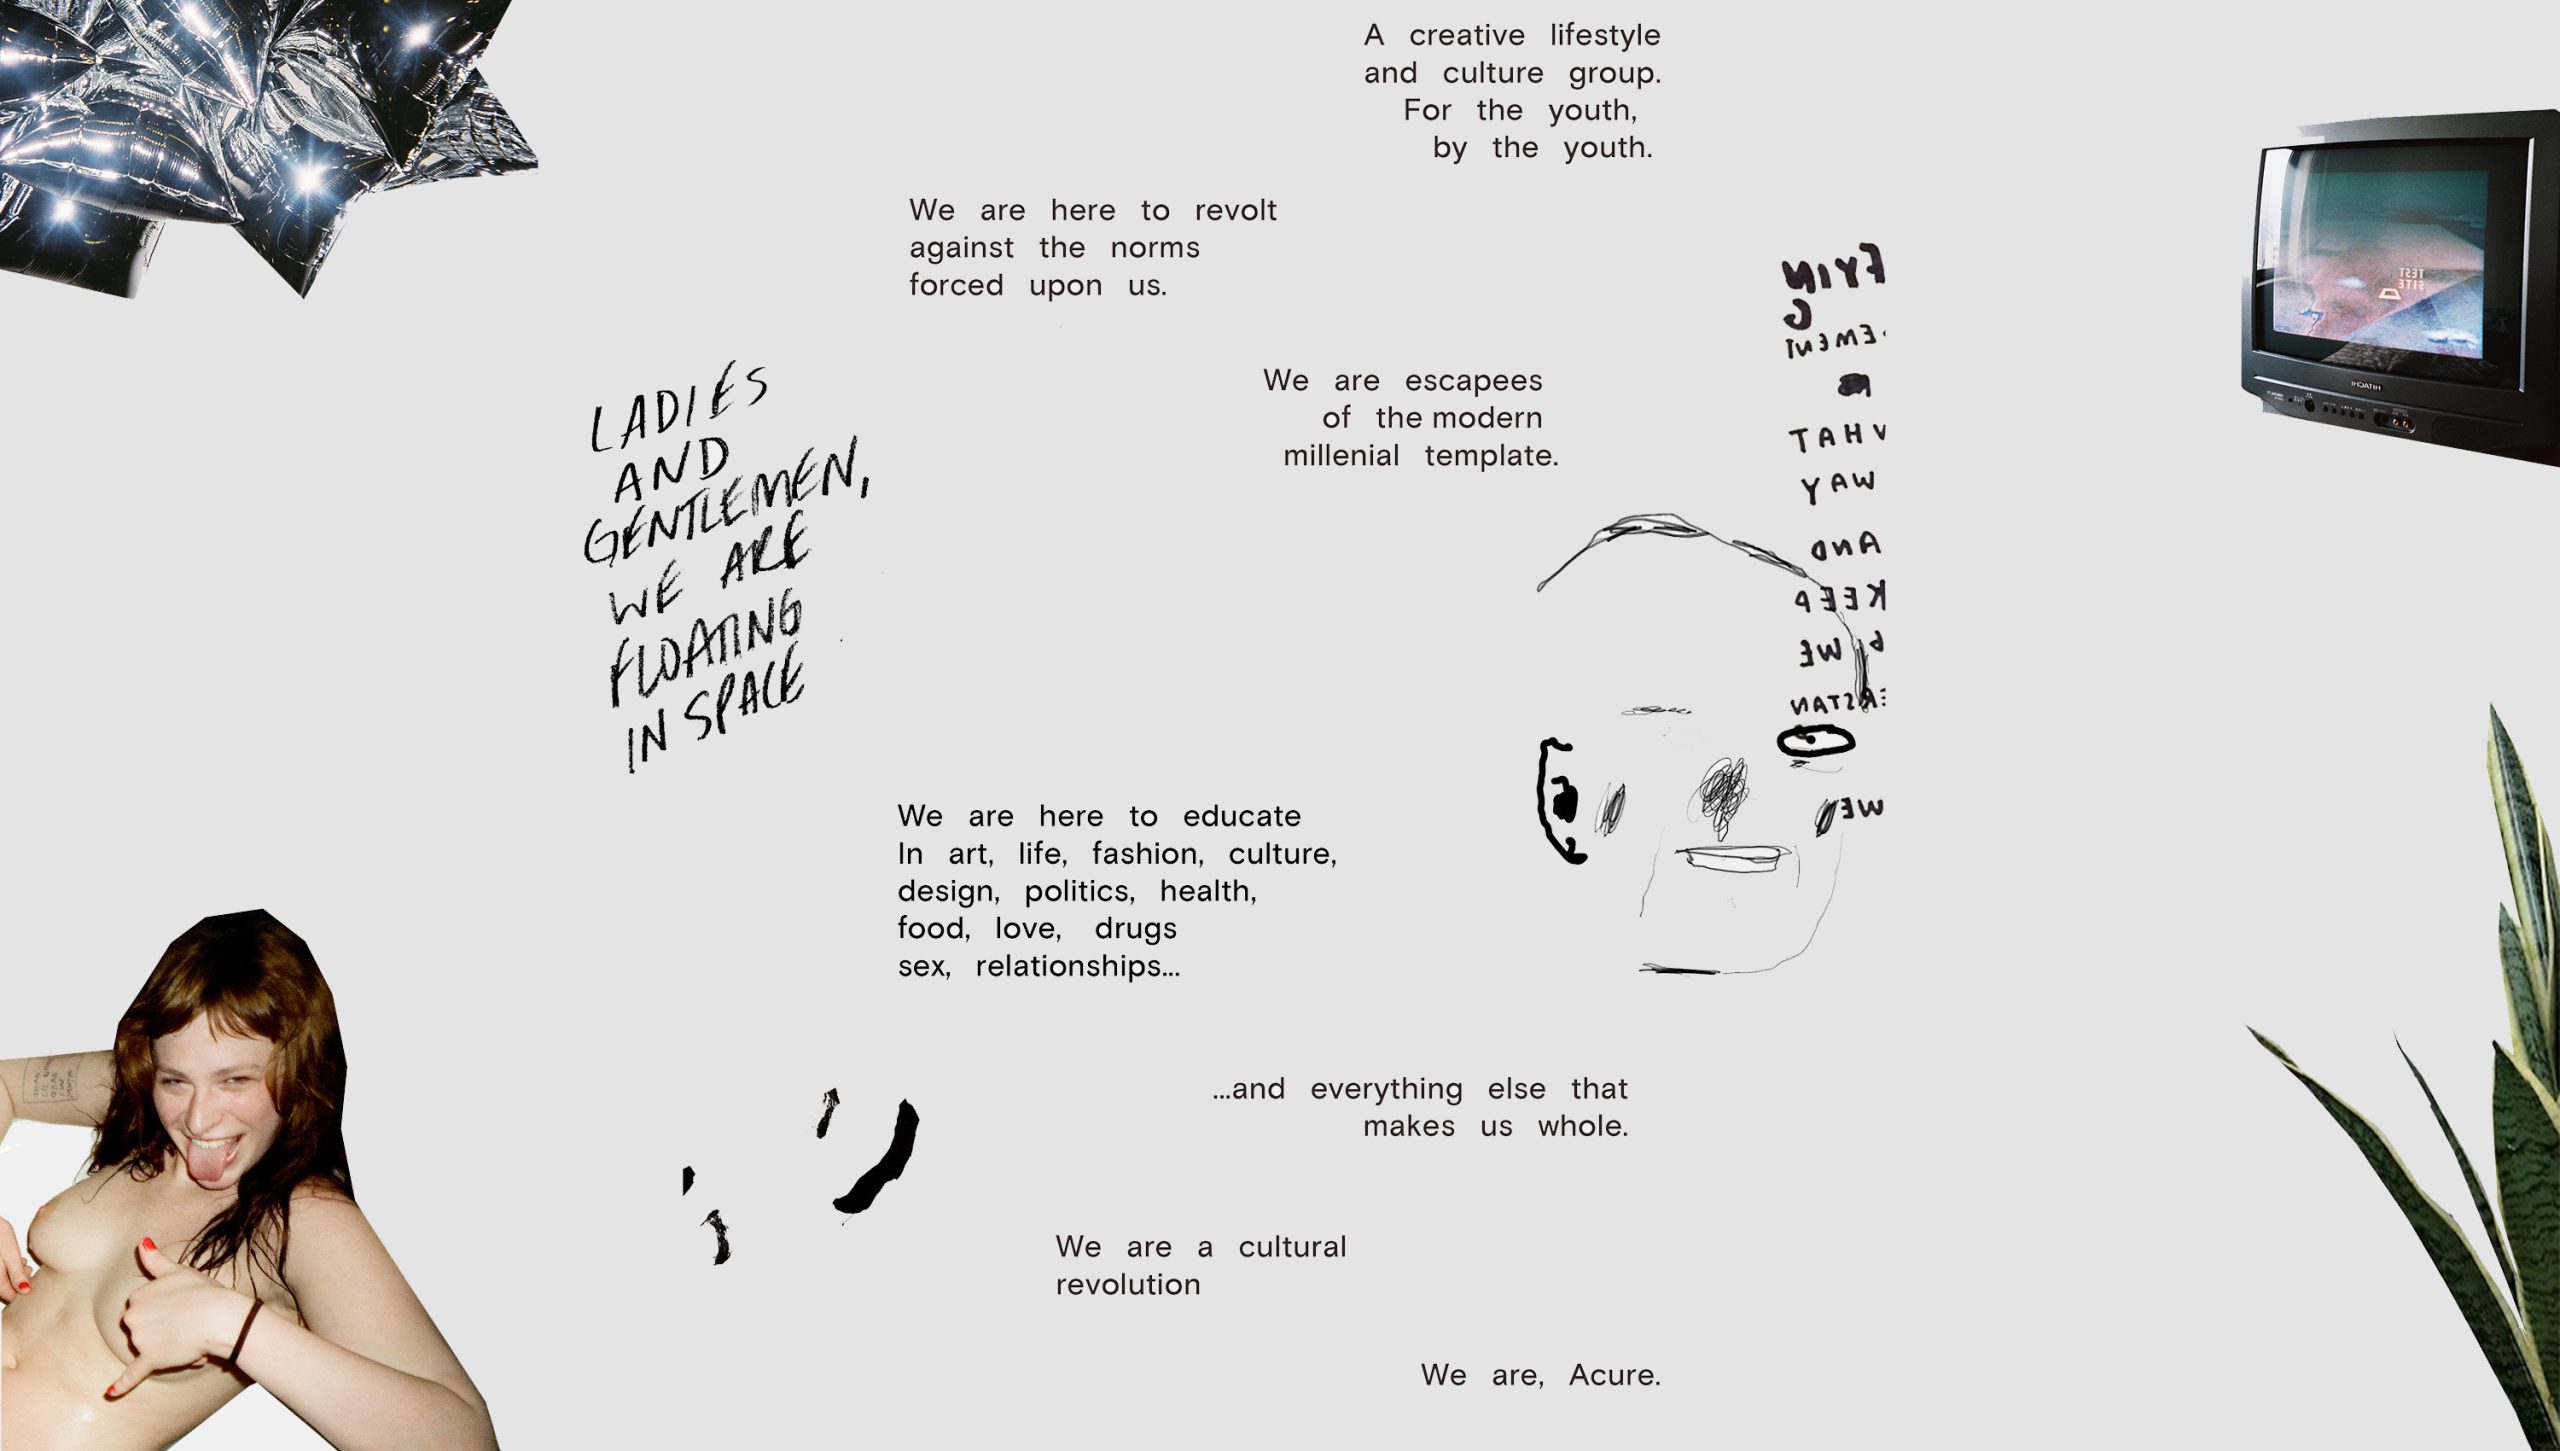 A creative lifestyle
and culture group.
For the youth,
by the youth.
We are here to revolt
against the norms
forced upon us.
We are escapees
of the modern
millenial template.
LADIES
AND
GENTLEMEN,
WE ARE
FLOATING
IN SPACE
TEST
SITE
HITACHI
AND
KEEP
ME
We are here to educate
In art, life, fashion, culture,
design, politics, health,
food, love, drugs
sex, relationships...
...and everything else that
makes us whole.
We are a cultural
revolution
We are, Acure.